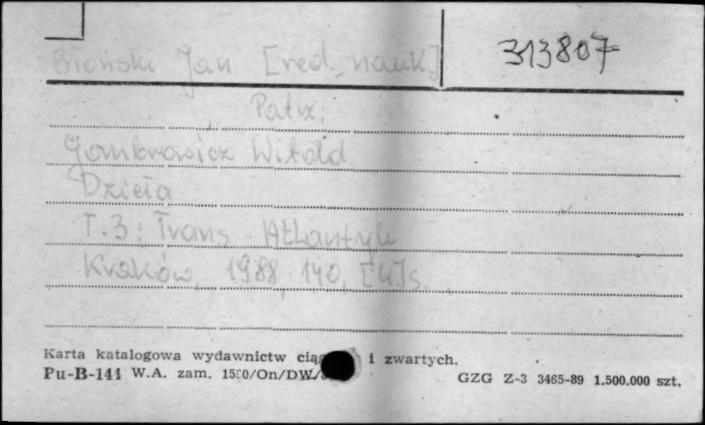 Błoński Jan [red. nauk.] 313807
Patrz:
Gombrowicz Witold
Dzieła
T.3: Trans-Atlantyk
Kraków, 1988, 140, [4]s.
Karta katalogowa wydawnictw i zwartych.
Pu-B-141 W.A. zam. GZG Z-3 3465-89 1.500.000 szt.